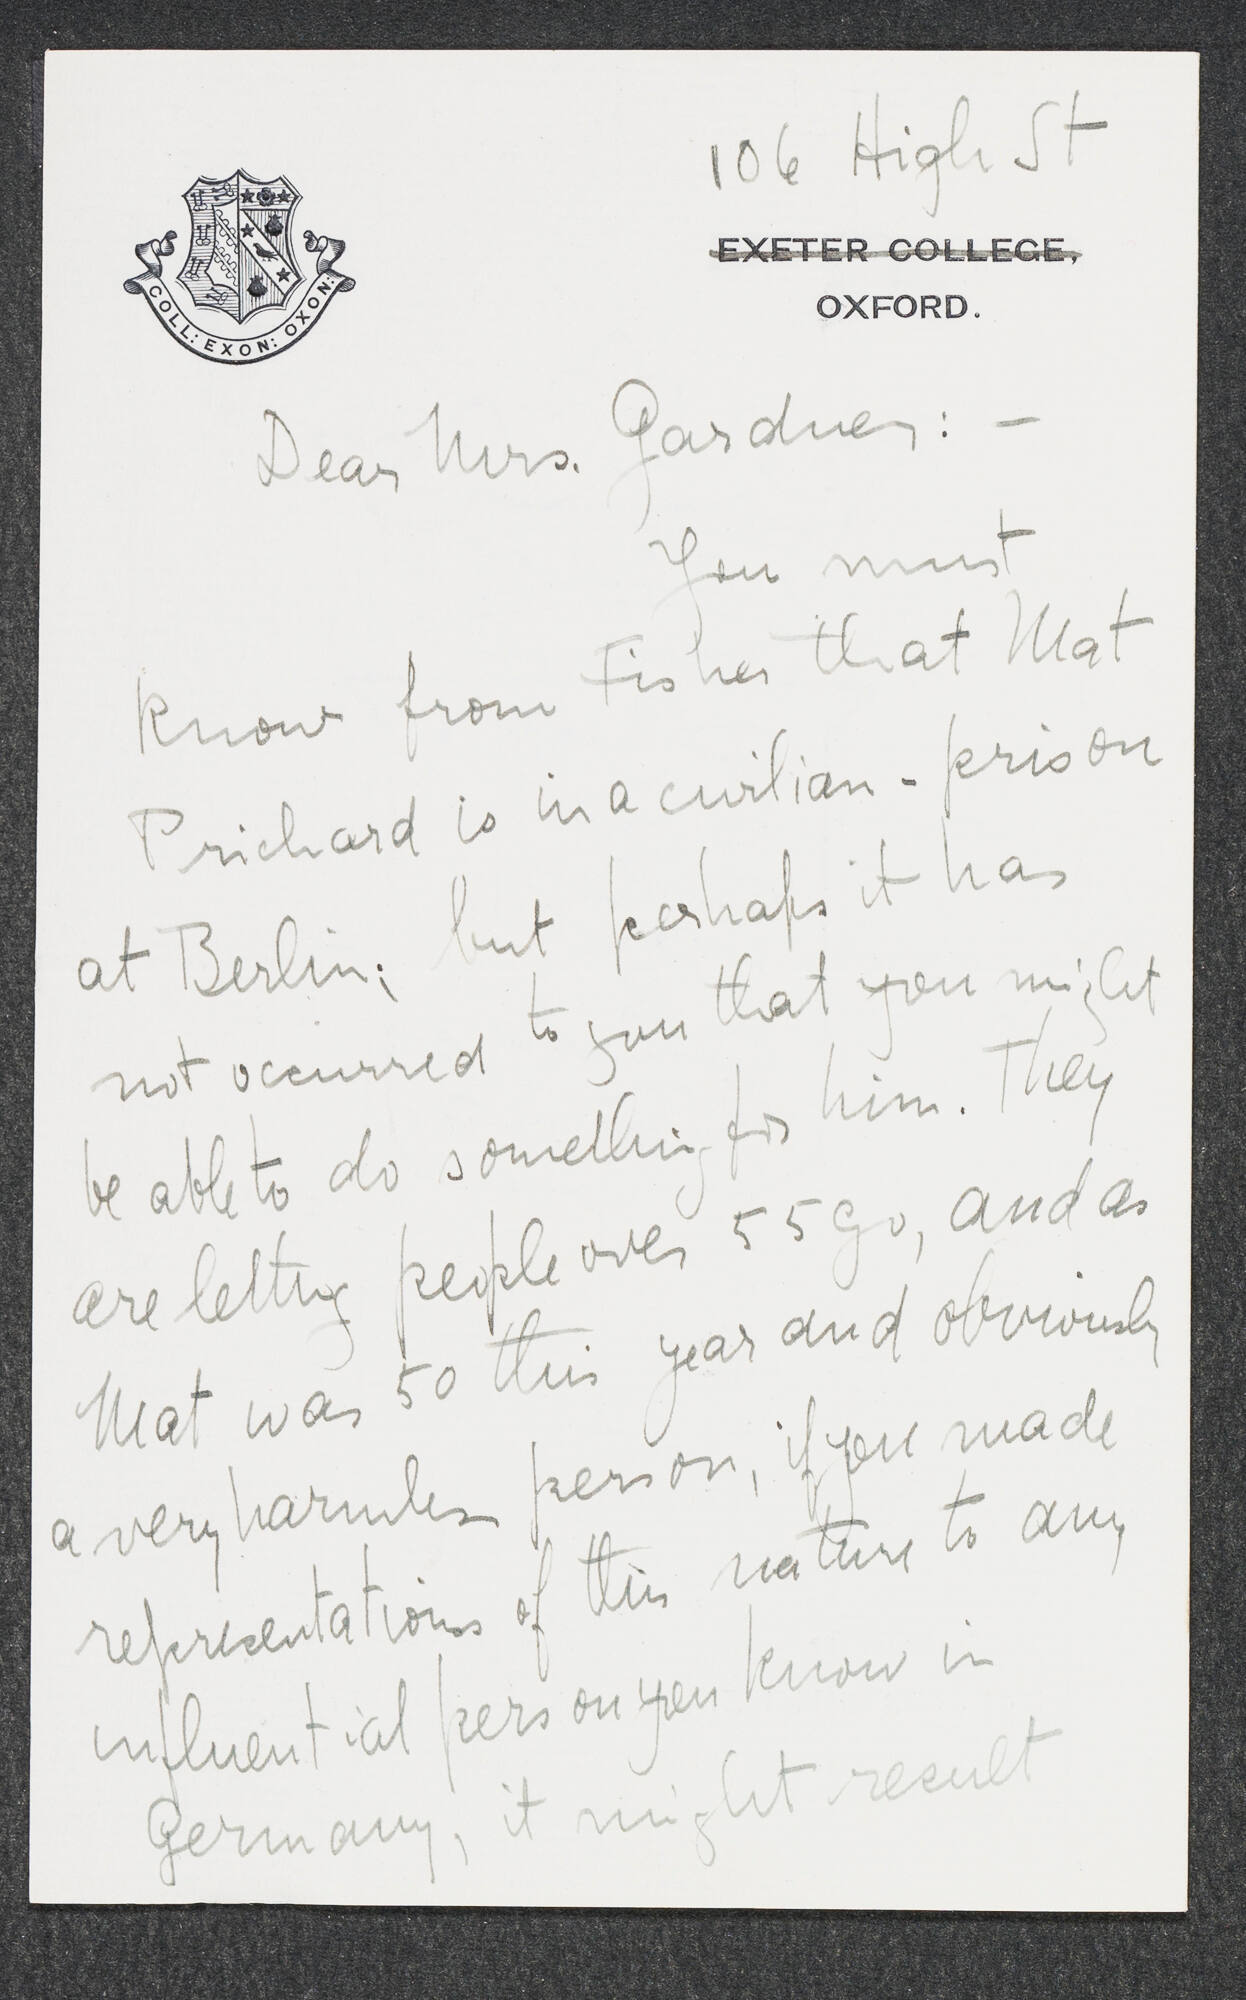 106 High St
EXETER COLLEGE,
OXFORD.
COLL: EXON: OXON:
Dear Mrs. Gardner: -
You must
know from Fisher that Mat
Prichard is in a civilian - prison
at Berlin; but perhaps it has
not occurred to you that you might
be able to do something for him. They
are letting people over 55 go, and as
Mat was 50 this year and obviously
a very harmless person, if you made
representations of this nature to any
influential person you know in
Germany, it might result